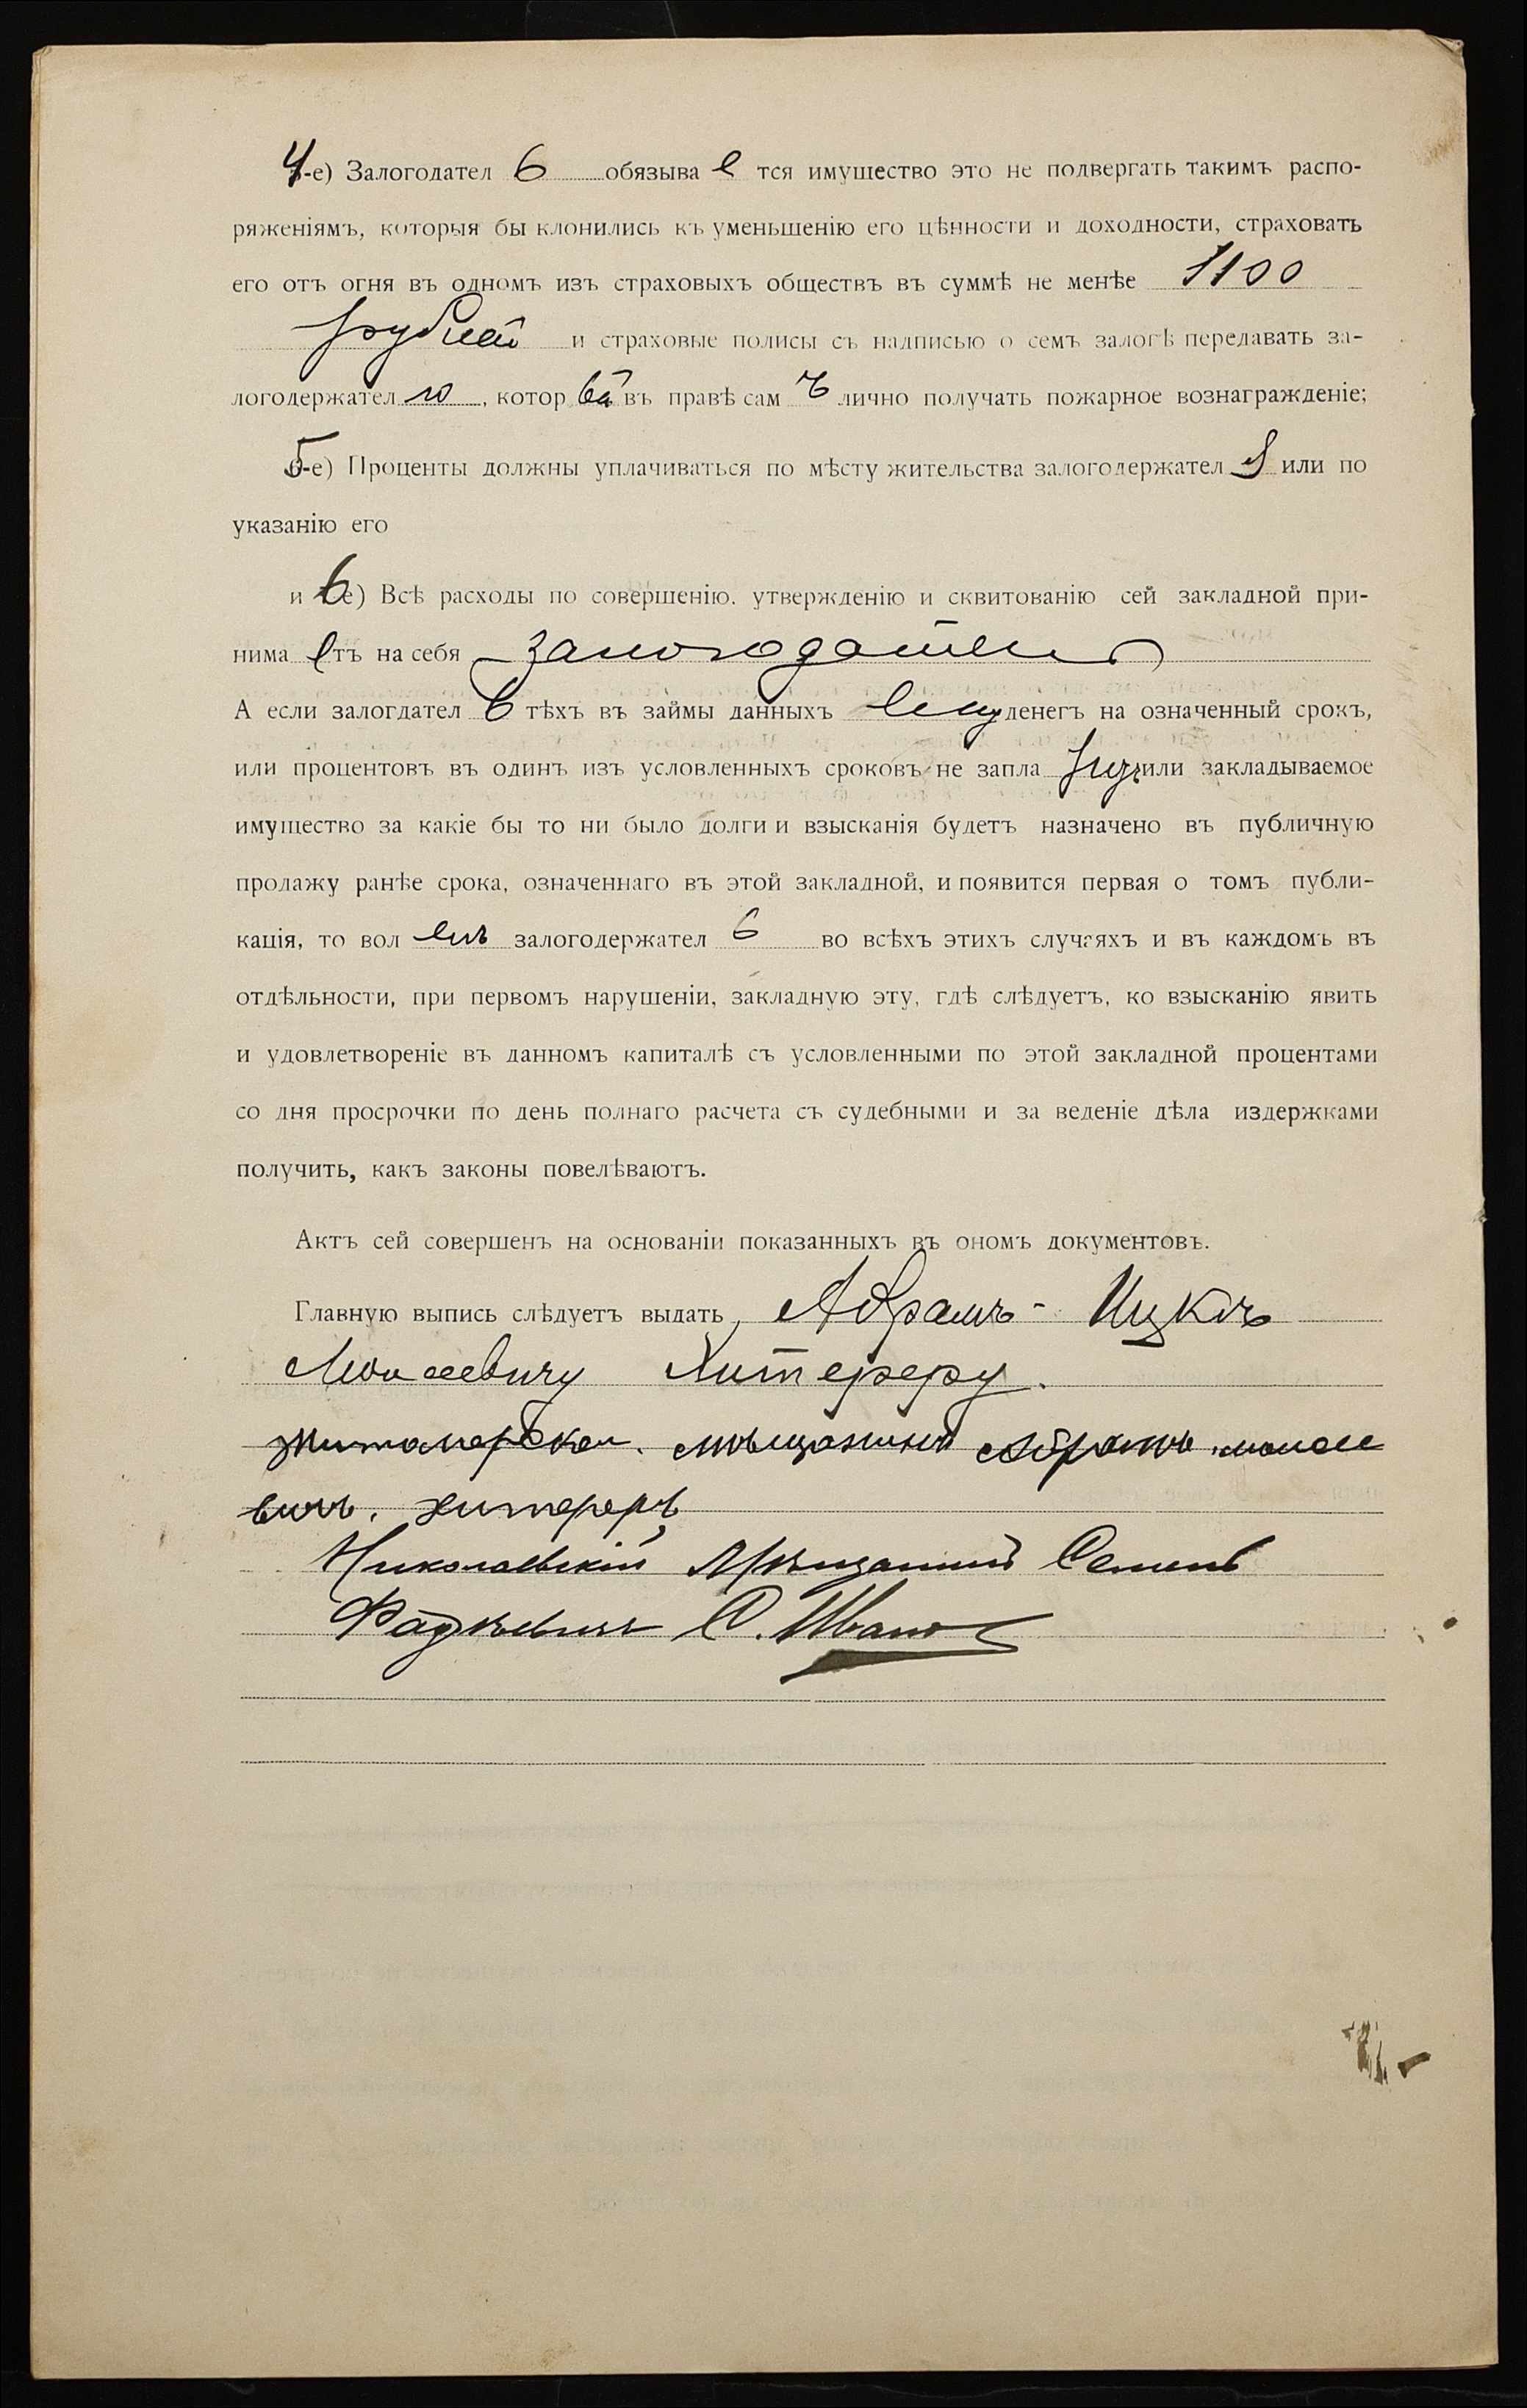 4-е) Залогодател ь обязыва е тся имущество это не подвергать такимъ распо-
ряженіямъ, которыя бы клонились къ уменьшенію его цѣнности и доходности, страховать
его отъ огня въ одномъ изъ страховыхъ обществъ въ суммѣ не менѣе 1100
рублей и страховые полисы съ надписью о семъ залогѣ передавать за-
логодержател ю, котор ый въ правѣ сам ъ лично получать пожарное вознагражденіе;
5-е) Проценты должны уплачиваться по мѣсту жительства залогодержател я или по
указанію его
и 6 е) Всѣ расходы по совершенію. утвержденію и сквитованію сей закладной при-
нима етъ на себя залогодатель
А если залогдател ь тѣхъ въ займы данныхъ ему денегъ на означенный срокъ,
или процентовъ въ одинъ изъ условленныхъ сроковъ не запла титъ или закладываемое
имущество за какіе бы то ни было долги и взысканія будетъ назначено въ публичную
продажу ранѣе срока, означеннаго въ этой закладной, и появится первая о томъ публи-
кація, то вол енъ залогодержател ь во всѣхъ этихъ случаяхъ и въ каждомъ въ
отдѣльности, при первомъ нарушеніи, закладную эту, гдѣ слѣдуетъ, ко взысканію явить
и удовлетвореніе въ данномъ капиталѣ съ условленными по этой закладной процентами
со дня просрочки по день полнаго расчета съ судебными и за веденіе дѣла издержками
получить, какъ законы повелѣваютъ.
Актъ сей совершенъ на основаніи показанныхъ въ ономъ документовъ.
Главную выпись слѣдуетъ выдать Абрамъ-Ицкѣ
Моисеевичу Хитереру.
мѣщанинъ Абрамъ моисе
вичъ. хитереръ
Николаевскій Мѣщанинъ Семенъ
Фадѣевичъ С. Иванов